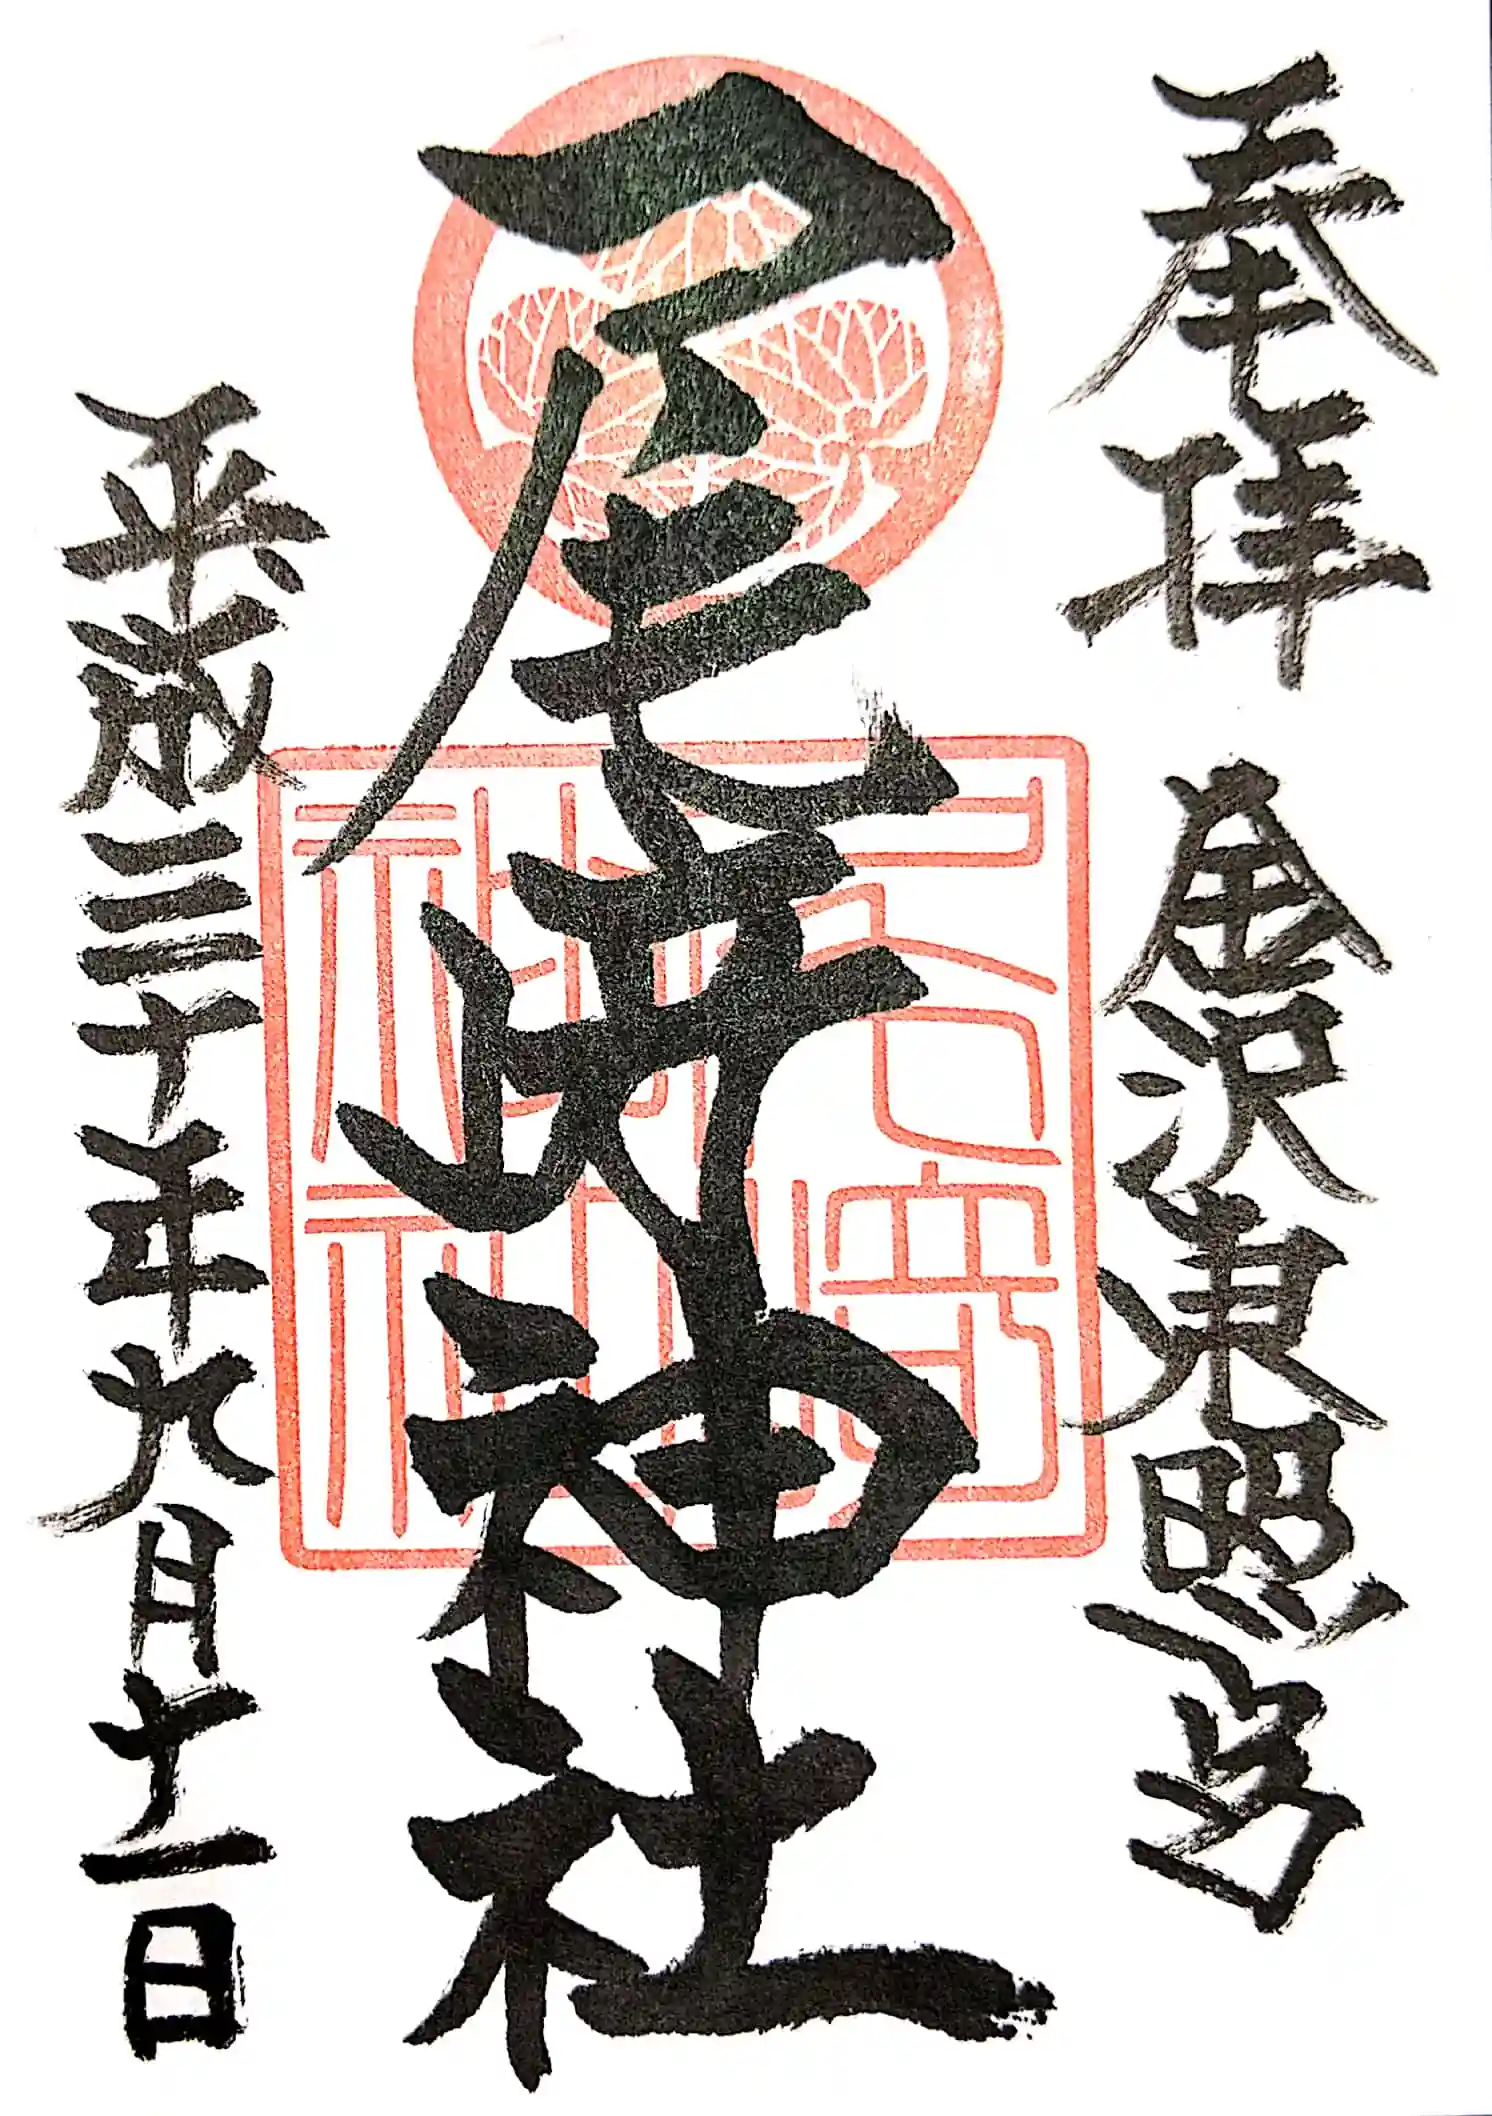 奉拝 金沢東照宮
尾﨑神社
平成三十年九月十一日